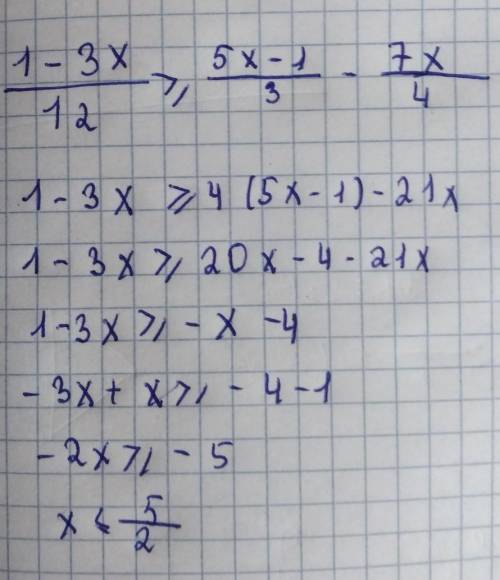 (1 - 3x)/12 ⩾ (5x - 1)/3 - 7x/4
1 - 3x ⩾ 4 (5x - 1) - 21x
1 - 3x ⩾ 20x - 4 - 21x
1 - 3x ⩾ - x - 4
- 3x + x ⩾ - 4 - 1
- 2x ⩾ - 5
x ⩽ 5/2